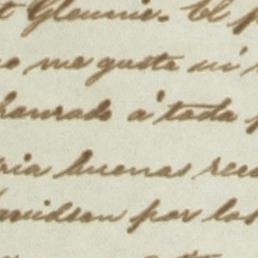 t Glennie. El p
o me gusta ni
honrado á toda p
ria buenas rec
Davidson por las